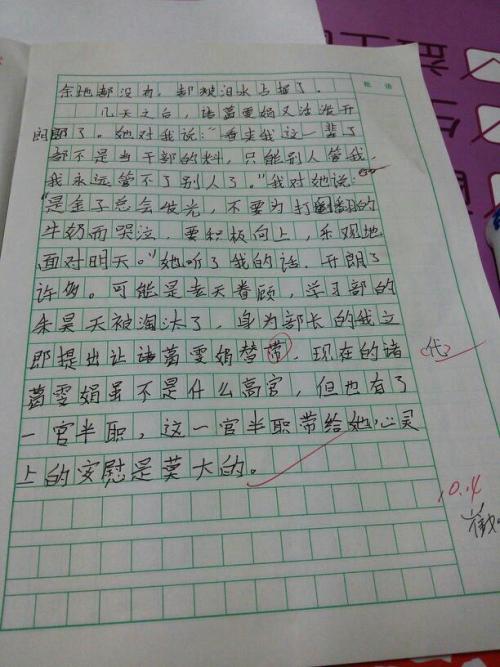 批语
余地都没有，都被泪水占据了。
几天之后，诸葛雯娟又活泼开
朗了。她对我说："看来我这一辈子
都不是当干部的料，只能别人管我，
我永远管不了别人了。"我对她说：
"是金子总会发光，不要为打翻的
牛奶而哭泣，要积极向上，乐观地
面对明天。"她听了我的话，开朗了
许多。可能是老天眷顾，学习部的
朱昊天被淘汰了，身为部长的我立
即提出让诸葛雯娟替带，现在的诸
代
葛雯娟虽不是什么高官，但也有了
一官半职，这一官半职带给她心灵
上的安慰是莫大的。
10.4